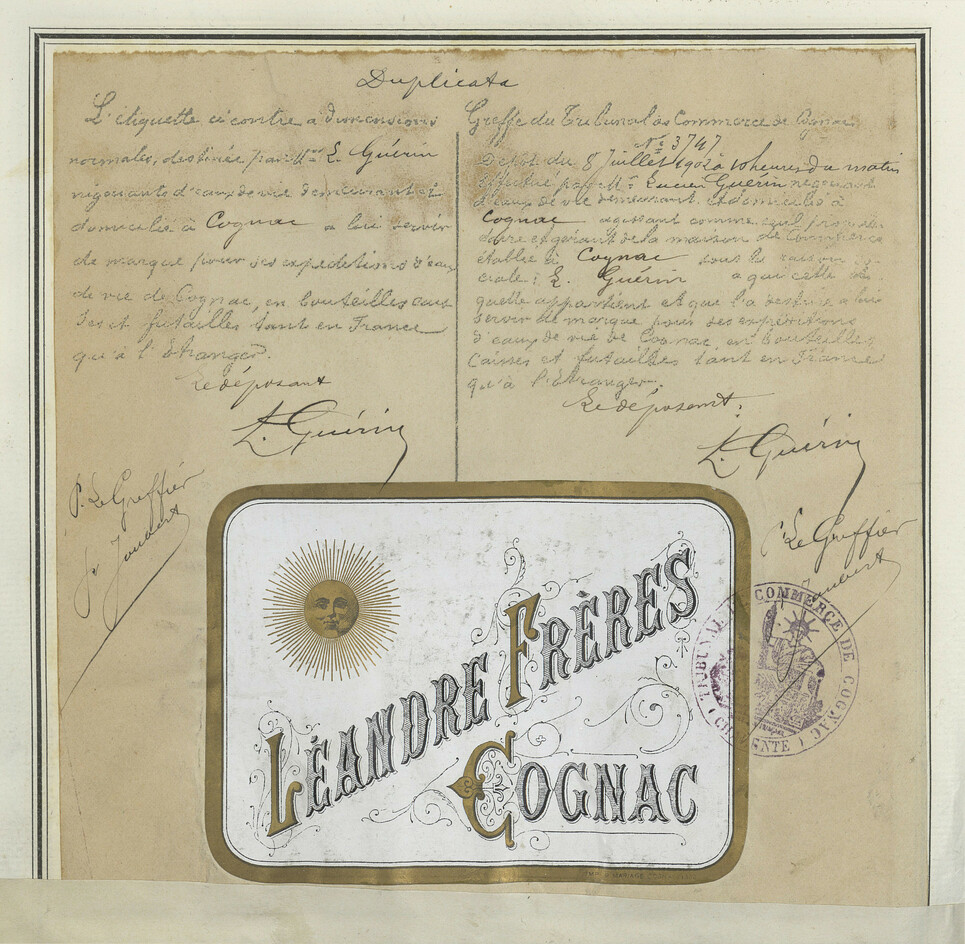 Duplicata
L'étiquette ci contre a dimensions
normales, destinée par Mr L. Guérin
négociants d'eaux de vie demeurant et
domiciliés à Cognac a lui servir
de marque pour ses expéditions d'eaux
de vie de Cognac, en bouteilles cais
ses et futailles tant en France
qu'à l'Etranger.
Le déposant
L. Guérin
P. Le Greffier
Joubert
Greffe du Tribunal de Commerce de Cognac
No 3747
Dépôt du 8 Juillet 1902 à 10 heures du matin
effectué par Mr Lucien Guérin négociant
d'eaux de vie demeurant et domicilié à
Cognac agissant comme seul proprié
taire et gérant de la maison de Commerce
établie à Cognac sous la raison so
ciale: L. Guérin a qui cette éti
quette appartient et que l'a destine a lui
servir de marque pour ses expéditions
d'eaux de vie de Cognac, en bouteilles
Caisses et futailles tant en France
qu'à l'Etranger.
Le déposant.
L. Guérin
P. Le Greffier
Joubert
LÉANDRE FRÈRES
COGNAC
TRIBUNAL DE COMMERCE DE COGNAC
(CHARENTE)